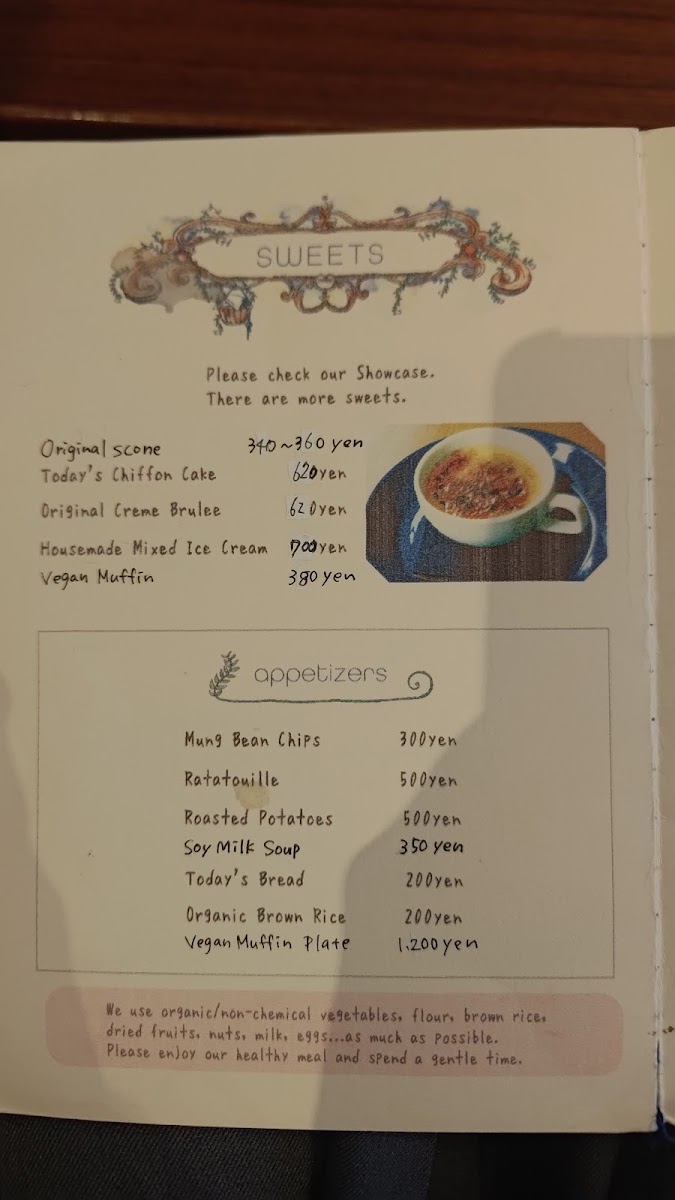 SWEETS
Please check our Showcase.
There are more sweets.
Original scone 340~360 yen
Today's Chiffon Cake 620yen
Original Creme Brulee 620yen
Housemade Mixed Ice Cream 700yen
Vegan Muffin 380 yen
appetizers
Mung Bean Chips 300yen
Ratatouille 500yen
Roasted Potatoes 500yen
Soy Milk Soup 350 yen
Today's Bread 200yen
Organic Brown Rice 200yen
Vegan Muffin Plate 1,200 yen
We use organic/non-chemical vegetables, flour, brown rice,
dried fruits, nuts, milk, eggs...as much as possible.
Please enjoy our healthy meal and spend a gentle time.